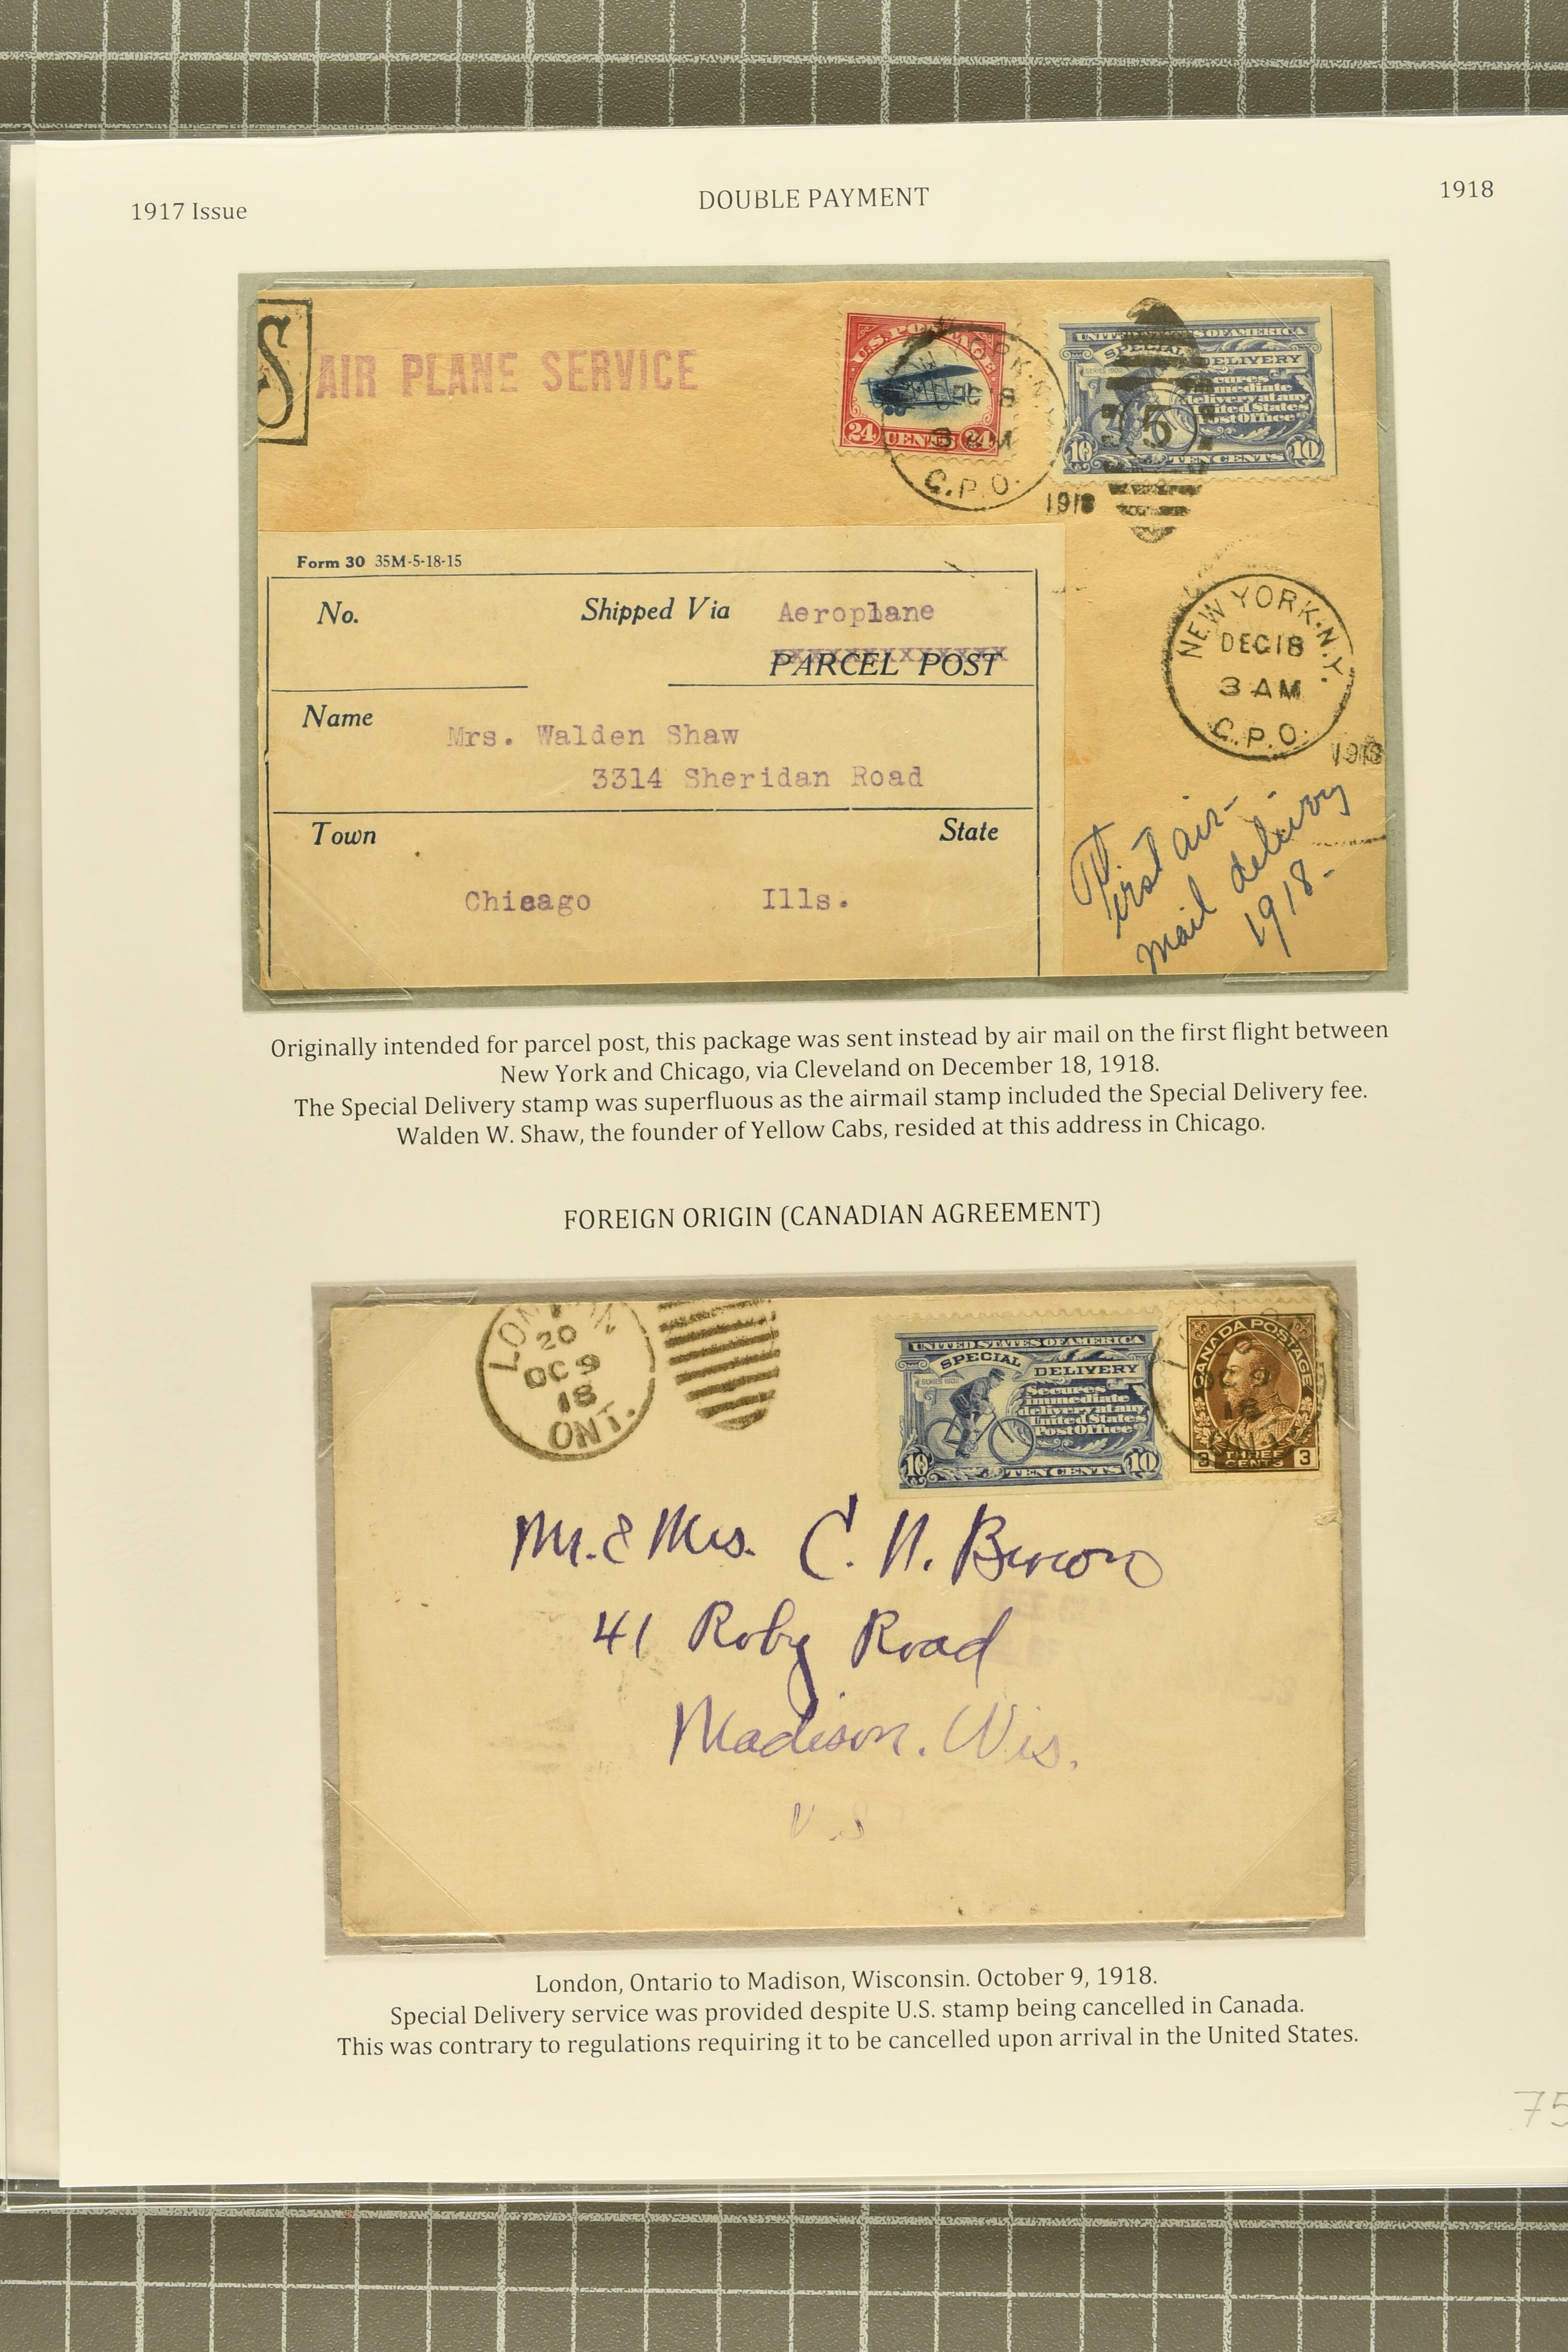 1917 Issue
DOUBLE PAYMENT
1918
S
AIR PLANE SERVICE
U.S. POSTAGE
24 CENTS 24
NEW YORK, N.Y.
DEC 18
3 AM
G.P.O.
1918
UNITED STATES OF AMERICA
SPECIAL DELIVERY
SERIES 1902
Secures
immediate
delivery at any
United States
Post Office
10 TEN CENTS 10
5
Form 30 35M-5-18-15
No.
Shipped Via Aeroplane
PARCEL POST
Name
Mrs. Walden Shaw
3314 Sheridan Road
Town
State
Chicago Ills.
NEW YORK, N.Y.
DEC 18
3 AM
G.P.O.
1918
First air-
mail delivery
1918-
Originally intended for parcel post, this package was sent instead by air mail on the first flight between
New York and Chicago, via Cleveland on December 18, 1918.
The Special Delivery stamp was superfluous as the airmail stamp included the Special Delivery fee.
Walden W. Shaw, the founder of Yellow Cabs, resided at this address in Chicago.
FOREIGN ORIGIN (CANADIAN AGREEMENT)
LONDON
20
OC 9
18
ONT.
UNITED STATES OF AMERICA
SPECIAL DELIVERY
SERIES 1902
Secures
immediate
delivery at any
United States
Post Office
10 TEN CENTS 10
CANADA POSTAGE
OC 9
18
3 THREE CENTS 3
Mr. & Mrs. C. N. Brown
41 Roby Road
Madison. Wis.
U.S
London, Ontario to Madison, Wisconsin. October 9, 1918.
Special Delivery service was provided despite U.S. stamp being cancelled in Canada.
This was contrary to regulations requiring it to be cancelled upon arrival in the United States.
75